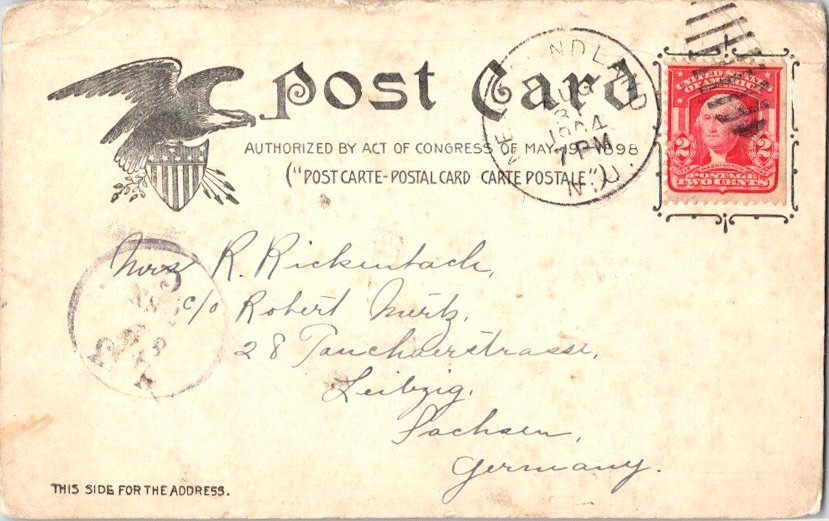 Post Card
AUTHORIZED BY ACT OF CONGRESS OF MAY 19 1898
("POST CARTE-POSTAL CARD CARTE POSTALE")
AUG
31
1904
7 PM
N.J.
UNITED STATES
OF AMERICA
2 2
POSTAGE
TWO CENTS
Mrs R. Rickenbach,
c/o Robert Mertz,
28 Tauchaerstrasse,
Leibzig,
Sachsen,
Germany.
THIS SIDE FOR THE ADDRESS.